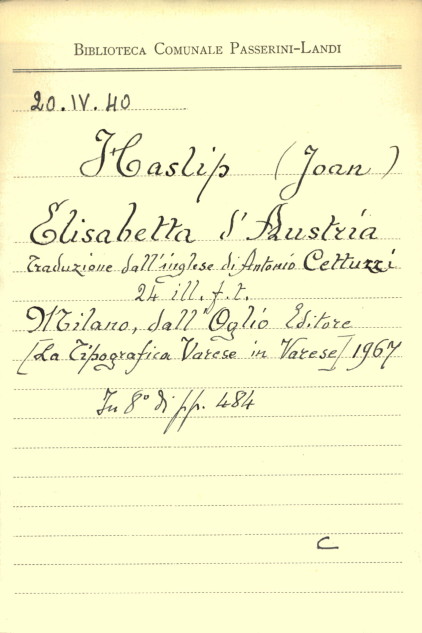 BIBLIOTECA COMUNALE PASSERINI-LANDI
20.IV.40
Haslip (Joan)
Elisabetta d'Austria
Traduzione dall'inglese di Antonio Cettuzzi
24 ill. f. t.
Milano, dall'Oglio Editore
[La Tipografica Varese in Varese] 1967
In 8° di pp. 484
C